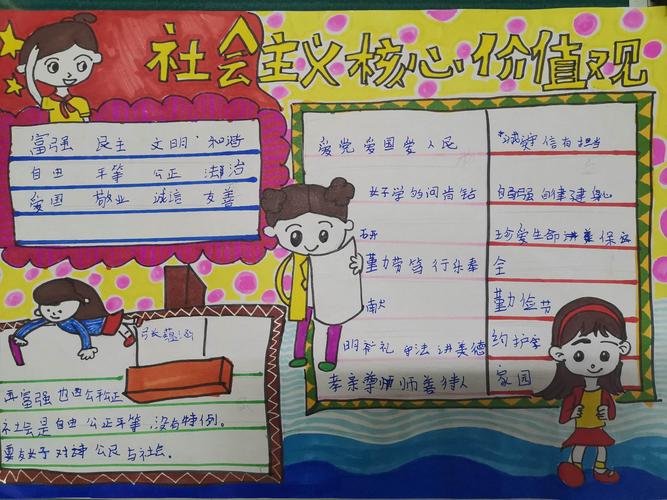 社会主义核心价值观
富强 民主 文明 和谐
自由 平等 公正 法治
爱国 敬业 诚信 友善
爱党 爱国 爱人民
好学多问肯钻
研
勤劳笃行乐奉
献
明礼 法讲美德
孝亲尊师善待人
诚实守信有担当
自强自律健身心
珍爱生命讲 保安
全
勤俭节
约护
家园
富强 也 公平公正
社会是自由 公正平等,没有特例。
要友 于对待 公民与社会.